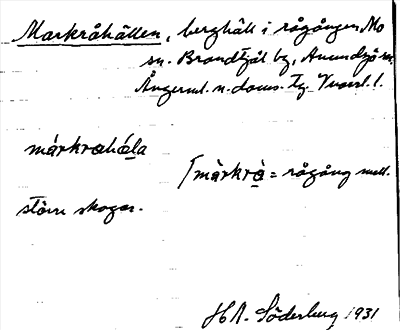 Markråhällen, berghäll i rågången Mo
sn. Brandtjäl by, Anundsjö sn.
Ångerml. n. doms. Tg.
märkrahóla
[märkrà = rågång mell.
större skogar.
H A. Söderberg 1931